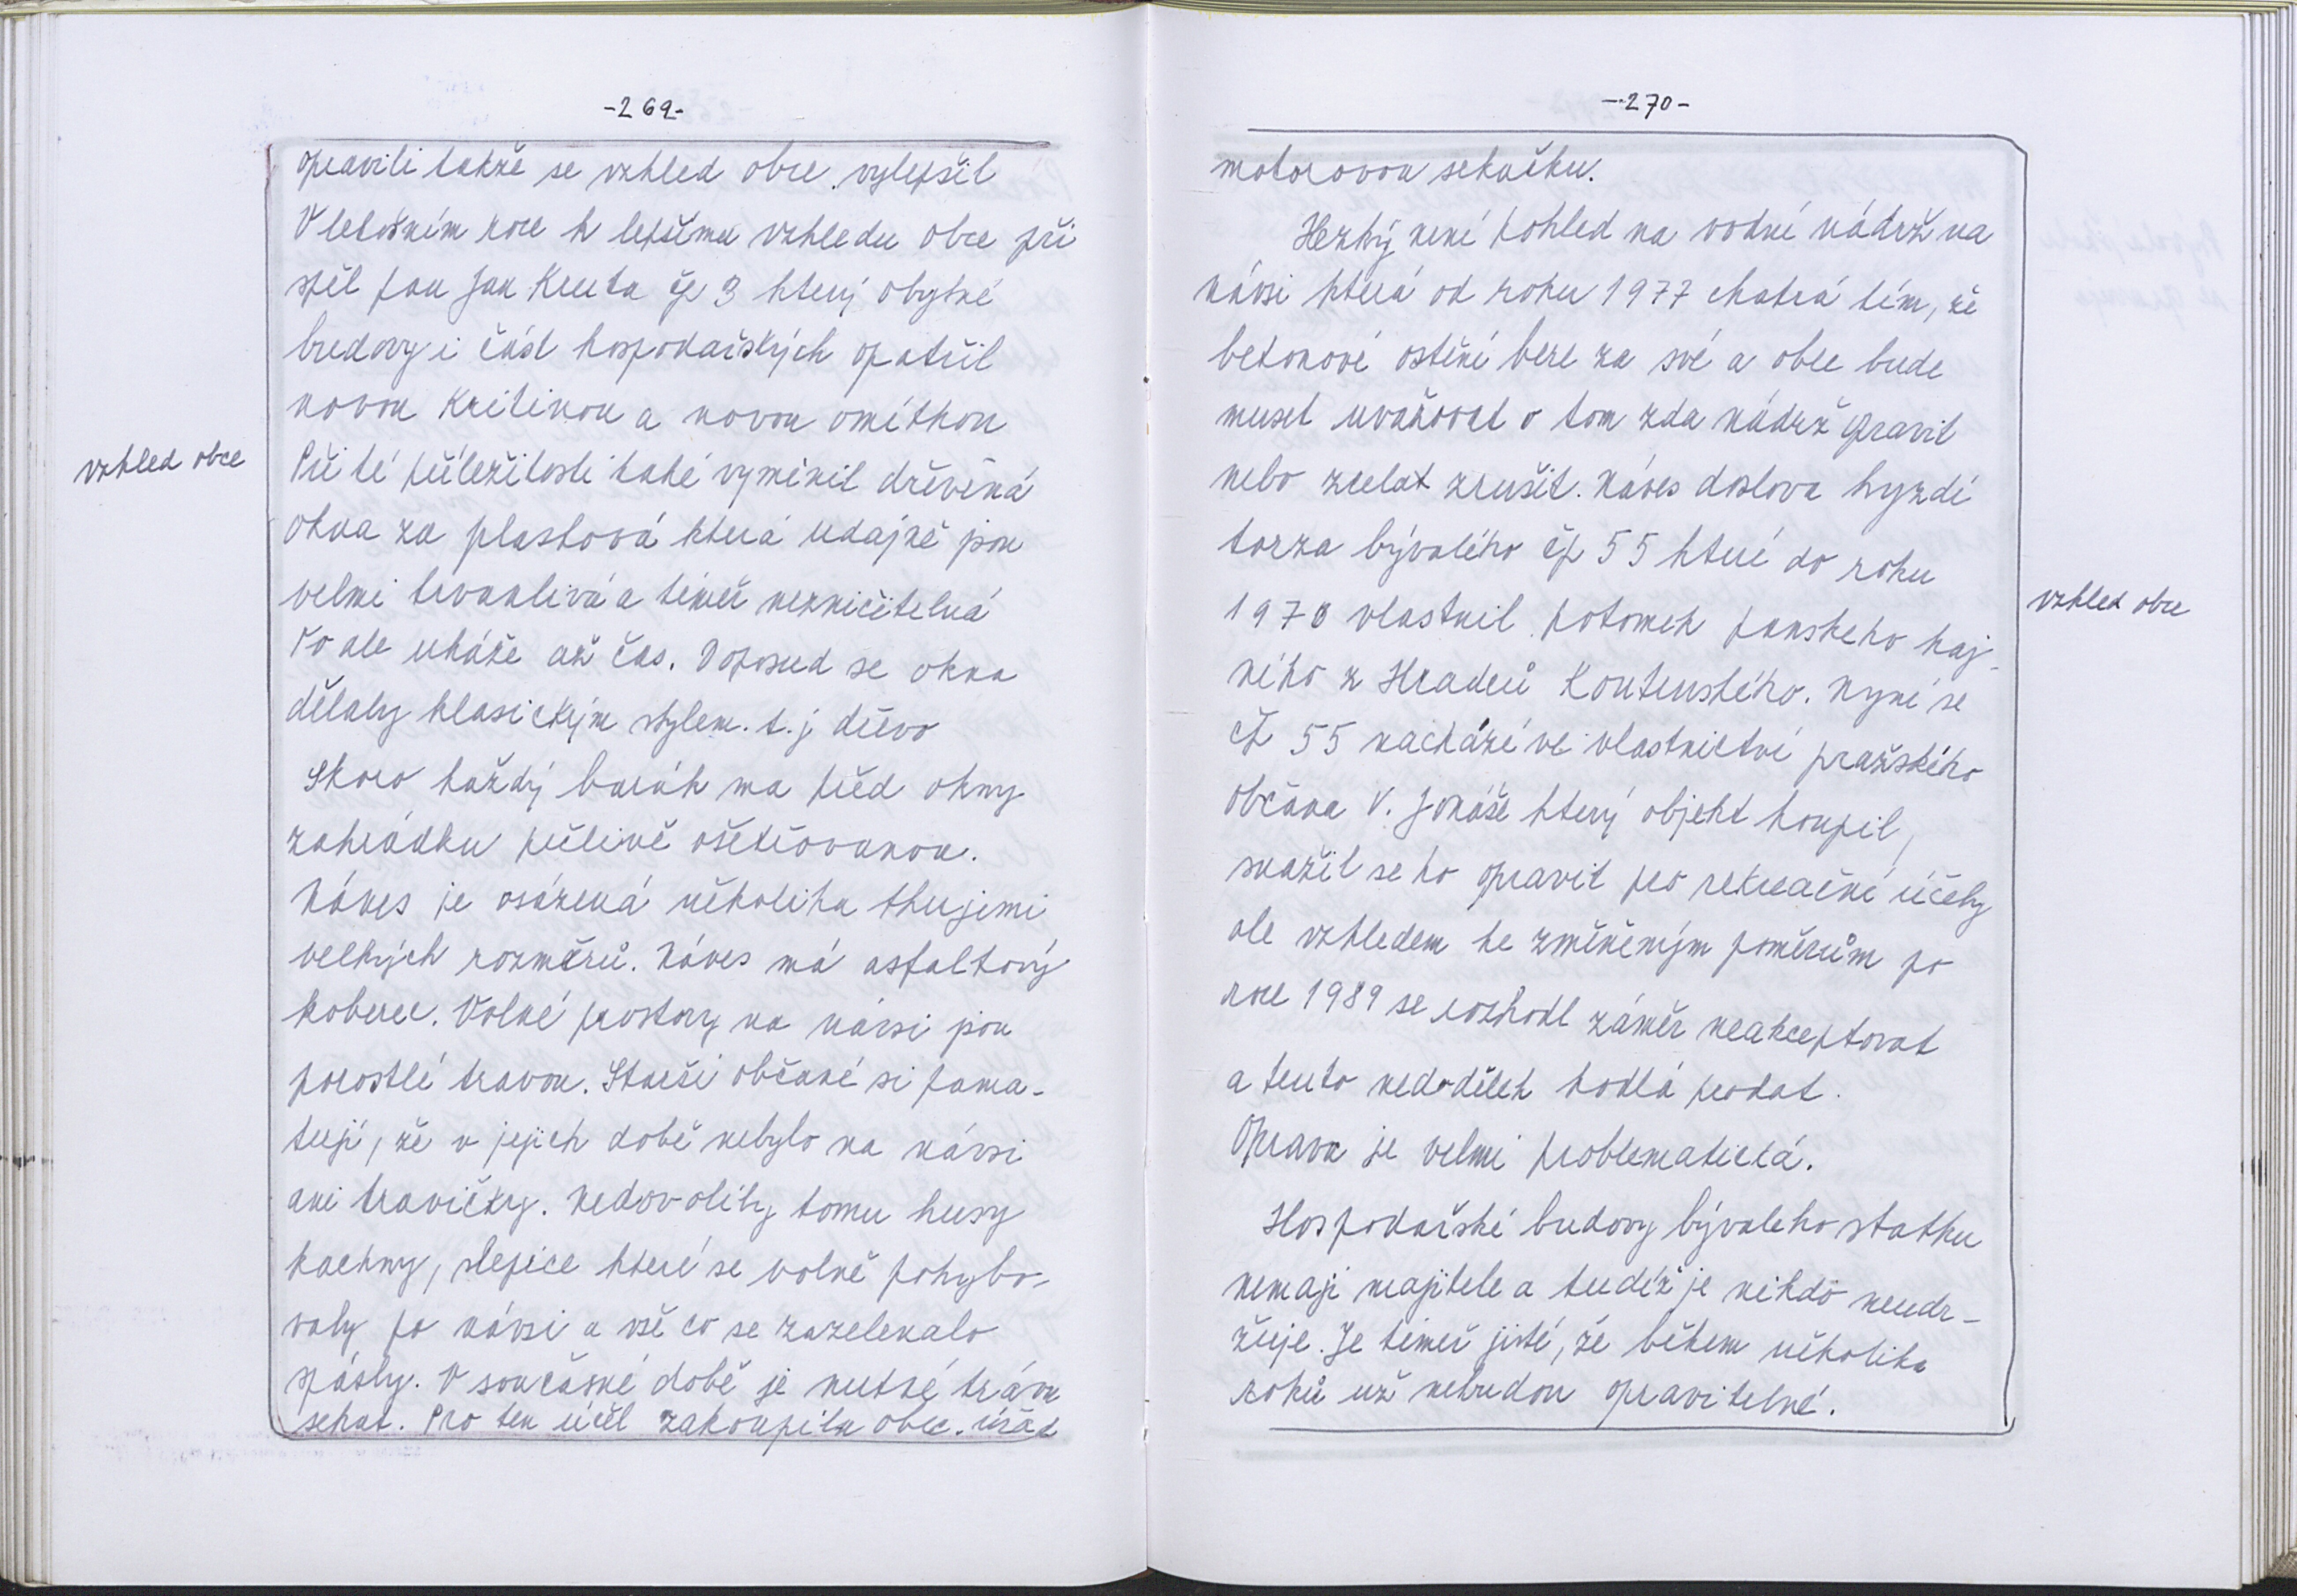 -269-
opravili takže se vzhled obce vylepšil
V letošním roce k lepšímu vzhledu obce při
spěl pan Jan Kruta čp 3 který obytné
budovy i část hospodářských opatřil
novou kritinou a novou omítkou
vzhled obce
Při té příležitosti také vyměnil dřevěná
okna za plastová která udajně jsou
velmi trvanlivá a téměř nezničitelná
To ale ukáže až čas. Doposud se okna
dělaly klasickým stylem. t.j dřevo
Skoro každý barák ma před okny
zahrádku pečlivě ošetřovanou.
Náves je osázená několika thujemi
velkých rozměrů. Náves má asfaltový
koberec. Volné prostory na návsi jsou
porostlé travou. Starší občané si pama-
tují, že v jejich době nebylo na návsi
ani travičky. Nedovolily tomu husy
kachny, slepice které se volně pohybo-
valy po návsi a vše co se zazelenalo
spásly. V současné době je nutné trávu
sekat. Pro ten účel zakoupila obec. úřad
-270-
motorovou sekačku.
Hezký není pohled na vodní nádrž na
návsi která od roku 1977 chatrá tím, že
betonové ostění bere za své a obec bude
muset uvažovat o tom zda nádrž opravit
nebo zcela zrušit. Náves doslova hyzdí
torza bývalého čp 55 které do roku
vzhled obce
1970 vlastnil potomek panskeho haj-
ného z Hradců Koutenského. Nyní se
čp 55 nachází ve vlastnictví pražského
občana V. Jonáše který objekt koupil,
snažil se ho opravit pro rekreační účely
ale vzhledem ke změněným poměrům po
roce 1989 se rozhodl záměr neakceptovat
a tento nedodělek hodlá prodat.
Oprava je velmi problematická.
Hospodářské budovy bývaleho statku
nemají majitele a tudíž je nikdo neudr-
žuje. Je téměř jisté, že během několika
roků už nebudou opravitelné.